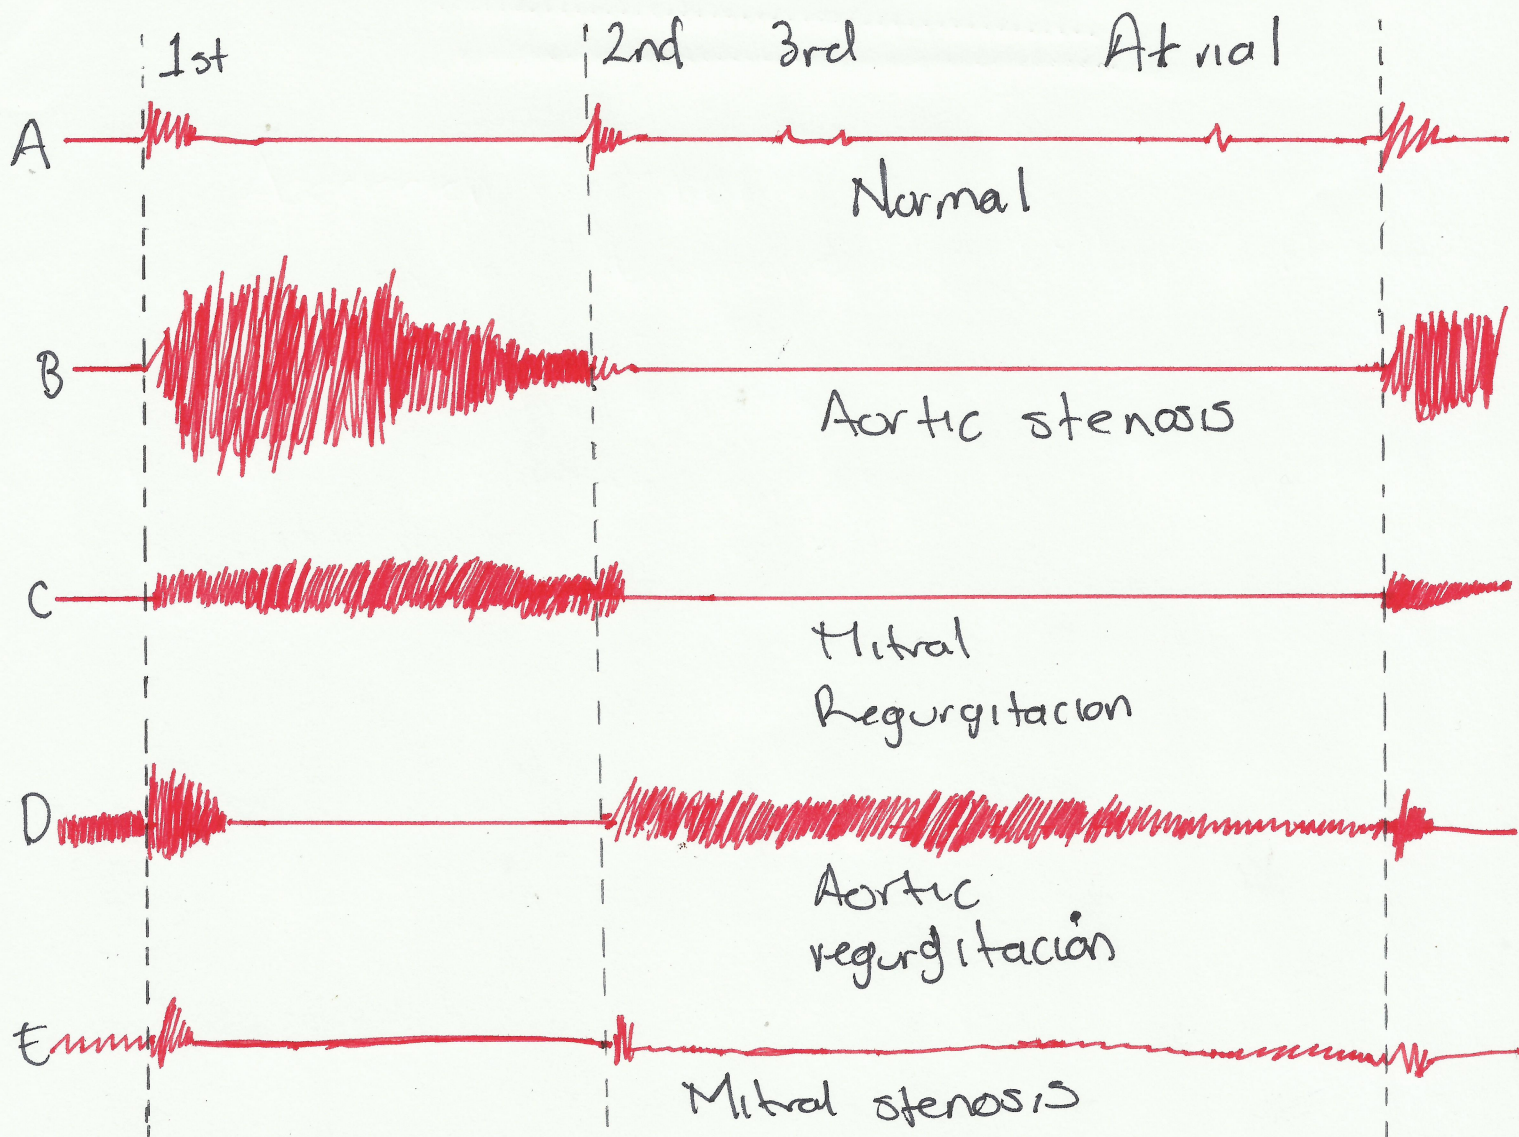 1st 2nd 3rd Atrial
A
Normal
B
Aortic stenosis
C
Mitral
Regurgitacion
D
Aortic
regurgitación
E
Mitral stenosis